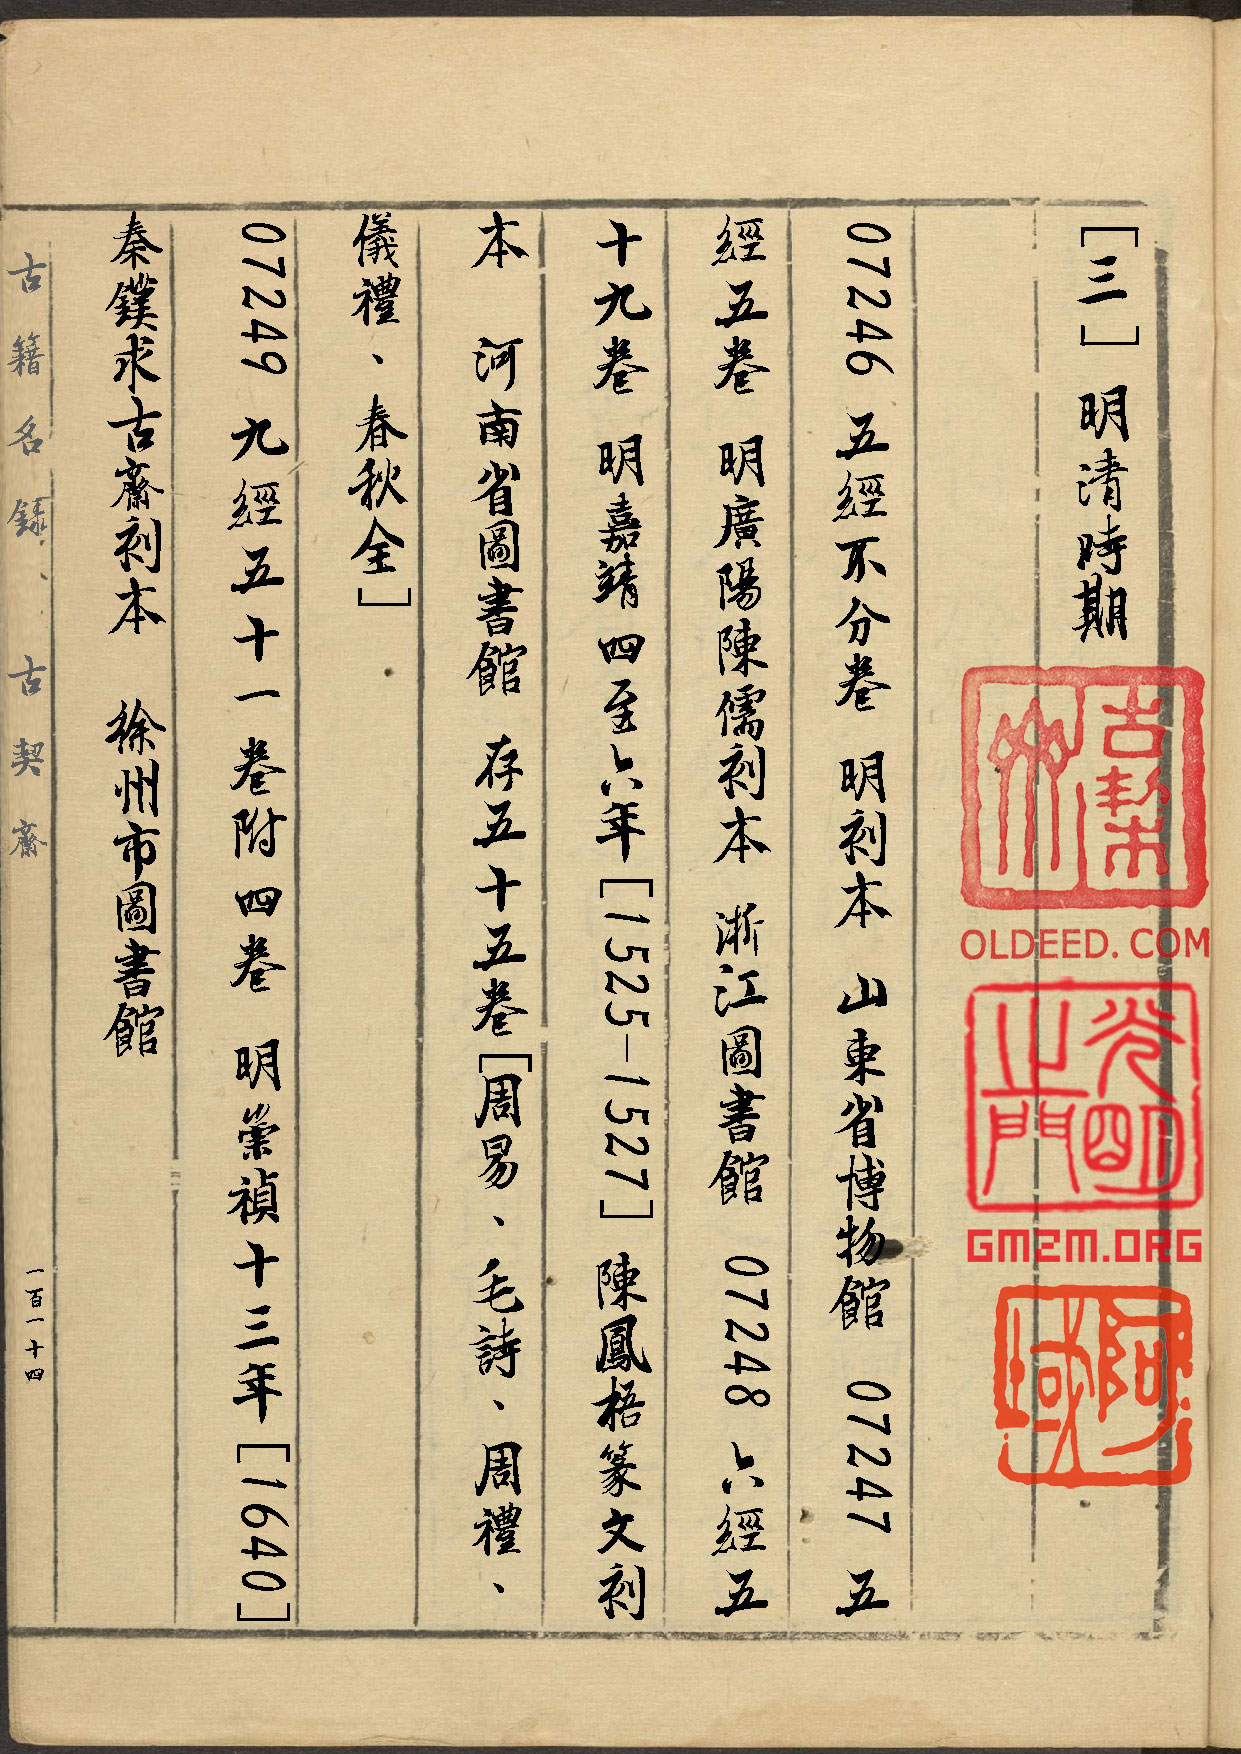 [三] 明清時期
07246 五經不分卷 明刻本 山東省博物館 07247 五
經五卷 明廣陽陳儒刻本 浙江圖書館 07248 六經五
十九卷 明嘉靖四至六年[1525-1527]陳鳳梧篆文刻
本 河南省圖書館 存五十五卷[周易、毛詩、周禮、
儀禮、春秋全]
07249 九經五十一卷附四卷 明崇禎十三年[1640]
秦鏷求古齋刻本 徐州市圖書館
古籍名録、、古契齋
一百一十四
古契齋
OLDEED.COM
光明之門
GMZM.ORG
阿域